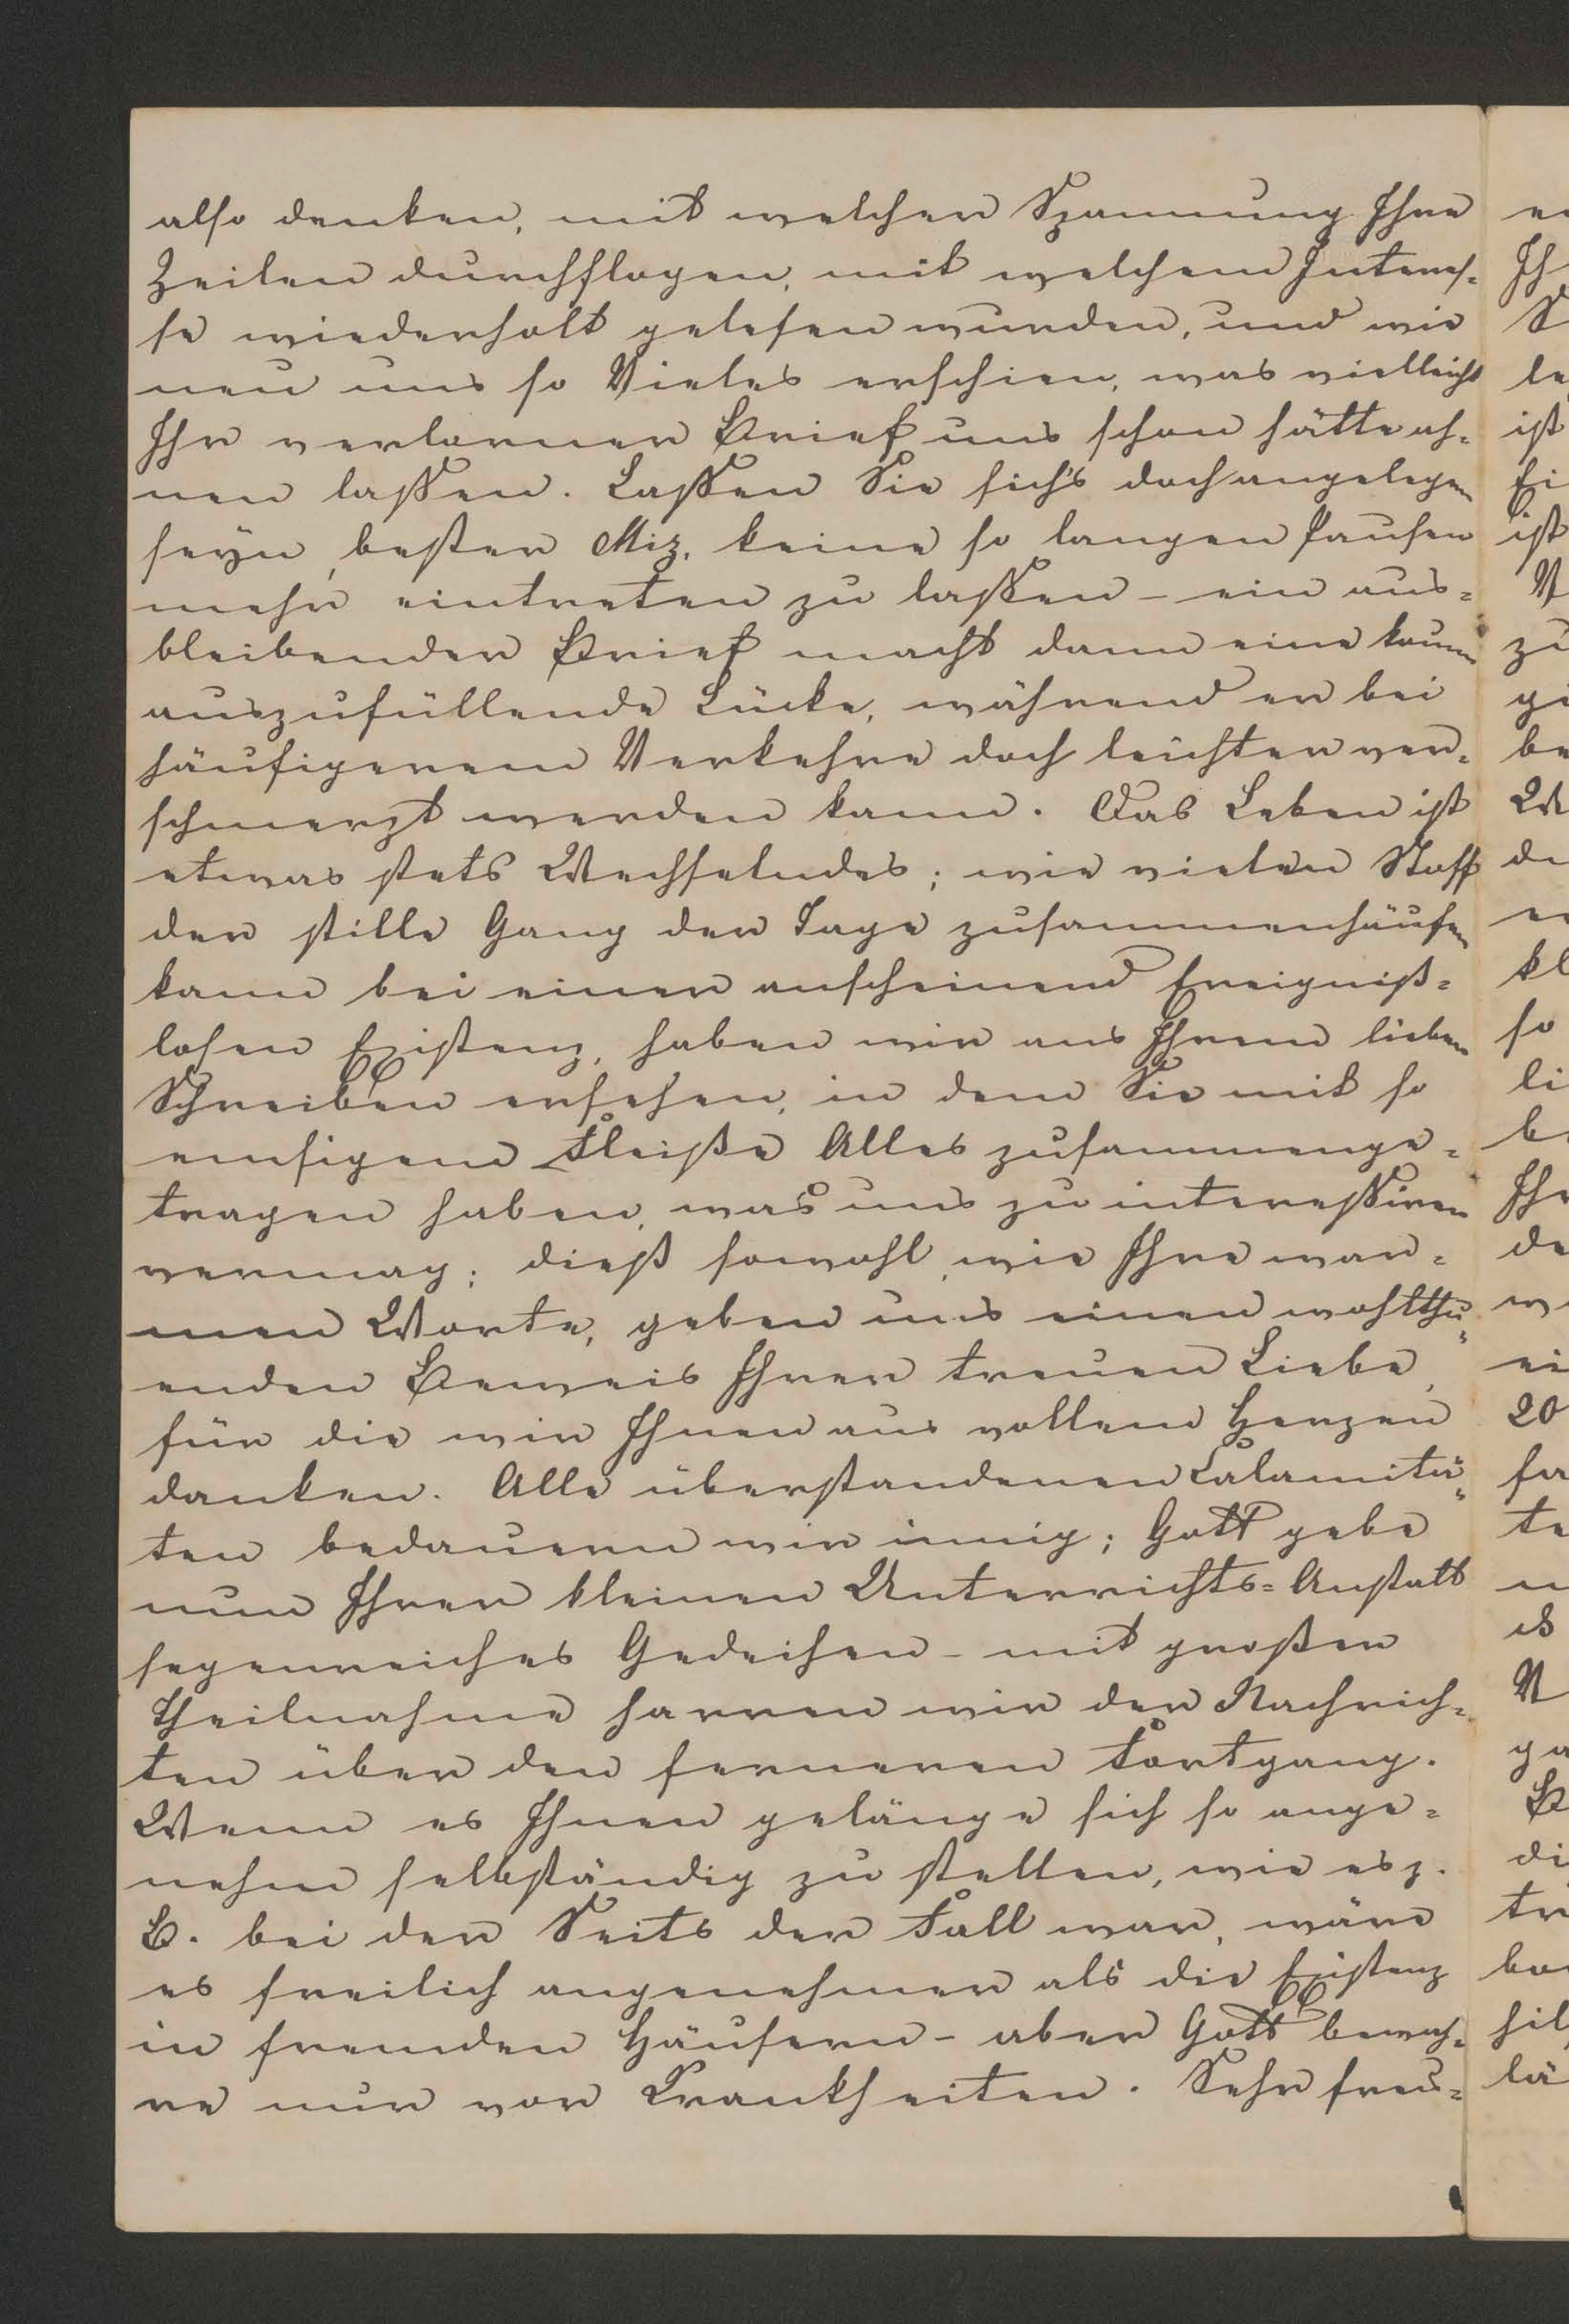 also denken, mit welcher Spannung Ihre
Zeilen durchflogen, mit welchem Interes-
se wiederholt gelesen wurden, und wie
neu uns so Vieles erschien, was vielleicht
Ihr verlorner Brief uns schon hätte ah-
nen lassen. Lassen Sie sich's doch angelegen
seyn, bester Miz, keine so langen Pausen
mehr eintreten zu lassen – ein aus-
bleibender Brief macht dann eine kaum
auszufüllende Lücke, während er bei
häufigerem Verkehre doch leichter ver-
schmerzt werden kann. Das Leben ist
etwas stets Wechselndes; wie vielen Stoff
der stille Gang der Tage zusammenhäufen
kann bei einer anscheinend Ereigniß-
losen Existenz, haben wir aus Ihrem lieben
Schreiben ersehen, in dem Sie mit so
emsigem Fleiße Alles zusammenge-
tragen haben, was uns zu interessiren
vermag; dieß sowohl, wie Ihre war-
men Worte, geben uns einen wohlthu-
enden Beweis Ihrer treuen Liebe,
für die wir Ihnen aus vollem Herzen
danken. Alle überstandenen Calamitä-
ten bedauern wir innig; Gott gebe
nun Ihrer kleinen Unterrichts-Anstalt
segenreiches Gedeihen – mit großer
Theilnahme harren wir der Nachrich-
ten über den ferneren Fortgang.
Wenn es Ihnen gelänge sich so ange-
nehm selbständig zu stellen, wie es z.
B. bei den Seits der Fall war, wäre
es freilich angenehmer als die Existenz
in fremden Häusern – aber Gott bewah-
re nur vor Krankheiten. Sehr freu-